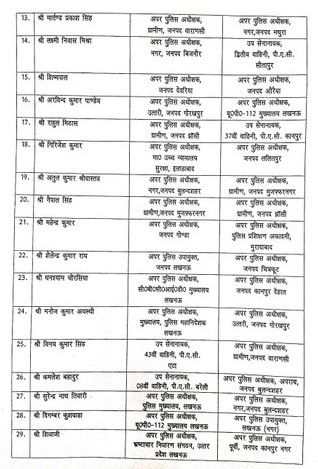 13. श्री मार्तण्ड प्रकाश सिंह अपर पुलिस अधीक्षक, अपर पुलिस अधीक्षक,
ग्रामीण, जनपद वाराणसी नगर, जनपद मथुरा
14. श्री लक्ष्मी निवास मिश्रा अपर पुलिस अधीक्षक, उप सेनानायक,
नगर, जनपद बिजनौर द्वितीय वाहिनी, पी.ए.सी.
सीतापुर
15. श्री शिष्यपाल अपर पुलिस अधीक्षक, अपर पुलिस अधीक्षक,
जनपद देवरिया जनपद औरैया
16. श्री अरविन्द कुमार पाण्डेय अपर पुलिस अधीक्षक, अपर पुलिस अधीक्षक,
उत्तरी, जनपद गोरखपुर यू0पी0-112 मुख्यालय लखनऊ
17. श्री राहुल मिठास अपर पुलिस अधीक्षक, उप सेनानायक,
ग्रामीण, जनपद झाँसी 37वीं वाहिनी, पी.ए.सी. कानपुर
18. श्री गिरिजेश कुमार अपर पुलिस अधीक्षक, अपर पुलिस अधीक्षक,
मा0 उच्च न्यायालय जनपद ललितपुर
सुरक्षा, इलाहाबाद
19. श्री अतुल कुमार श्रीवास्तव अपर पुलिस अधीक्षक, अपर पुलिस अधीक्षक,
नगर,जनपद बुलन्दशहर ग्रामीण, जनपद मुजफ्फरनगर
20. श्री नैपाल सिंह अपर पुलिस अधीक्षक, अपर पुलिस अधीक्षक,
ग्रामीण,जनपद मुजफ्फरनगर ग्रामीण, जनपद झाँसी
21. श्री महेन्द्र कुमार अपर पुलिस अधीक्षक, अपर पुलिस अधीक्षक,
जनपद गोण्डा पुलिस प्रशिक्षण अकादमी,
मुरादाबाद
22. श्री शैलेन्द्र कुमार राय अपर पुलिस उपायुक्त, अपर पुलिस अधीक्षक,
जनपद लखनऊ जनपद चित्रकूट
23. श्री घनश्याम चौरसिया अपर पुलिस अधीक्षक, अपर पुलिस अधीक्षक,
सी0बी0सी0आई0डी0 मुख्यालय जनपद कानपुर देहात
लखनऊ
24. श्री मनोज कुमार अवस्थी अपर पुलिस अधीक्षक, अपर पुलिस अधीक्षक,
मुख्यालय, पुलिस महानिदेशक उत्तरी, जनपद गोरखपुर
लखनऊ
25. श्री विनय कुमार सिंह उप सेनानायक, अपर पुलिस अधीक्षक,
43वीं वाहिनी, पी.ए.सी. ग्रामीण,जनपद वाराणसी
एटा
26. श्री कमलेश बहादुर उप सेनानायक, अपर पुलिस अधीक्षक, अपराध,
08वीं वाहिनी, पी.ए.सी. बरेली जनपद बुलन्दशहर
27. श्री सुरेन्द्र नाथ तिवारी अपर पुलिस अधीक्षक, अपर पुलिस अधीक्षक,
पुलिस मुख्यालय, लखनऊ नगर,जनपद बुलन्दशहर
28. श्री दिगम्बर कुशवाहा अपर पुलिस अधीक्षक, अपर पुलिस उपायुक्त,
यू0पी0-112 मुख्यालय लखनऊ लखनऊ (नगर)
29. श्री शिवाजी अपर पुलिस अधीक्षक, अपर पुलिस अधीक्षक,
भ्रष्टाचार निवारण संगठन, उत्तर पूर्वी, जनपद कानपुर नगर
प्रदेश लखनऊ